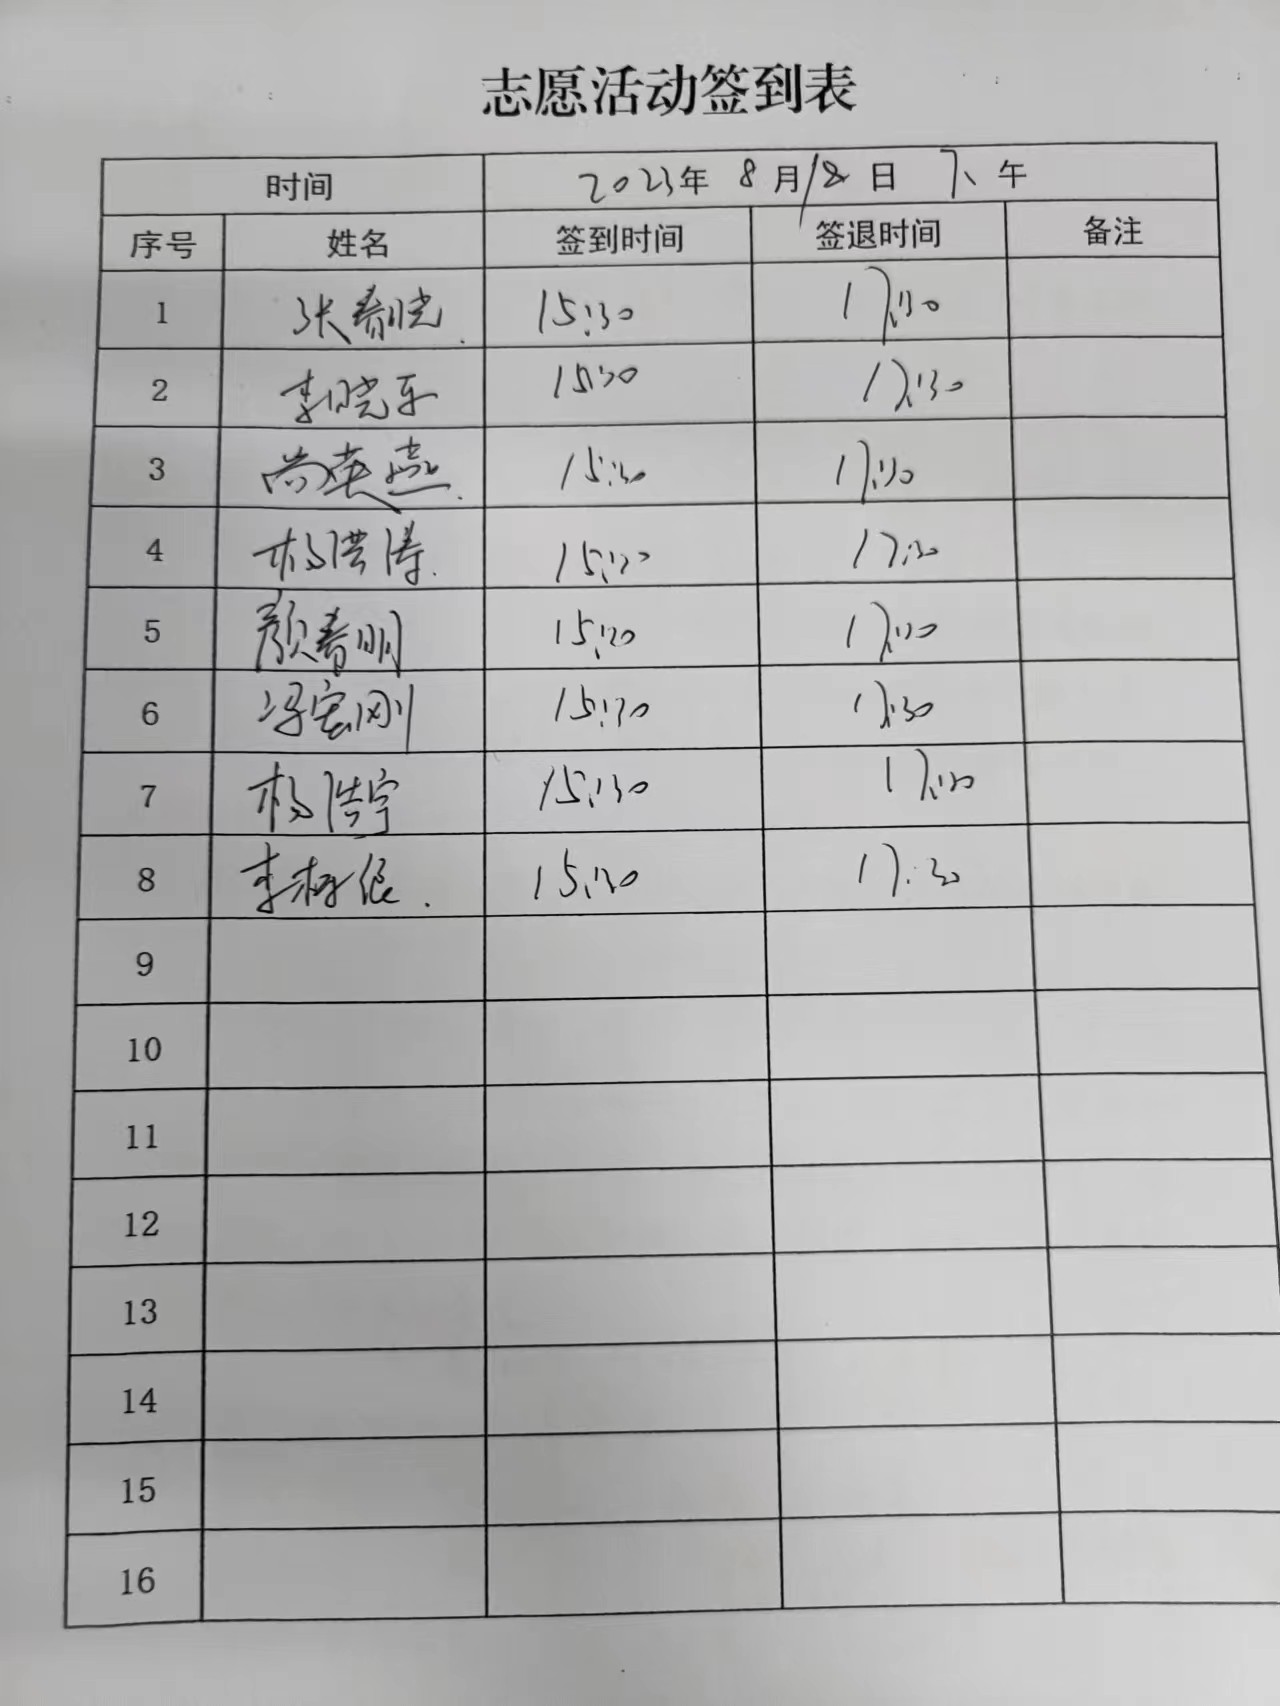 志愿活动签到表
时间 2023年 8月18日 下午
序号 姓名 签到时间 签退时间 备注
1 张春晓 15:30 17:30
2 李晓乐 15:30 17:30
3 尚英燕 15:30 17:30
4 杨洪涛 15:30 17:30
5 颜春明 15:30 17:30
6 冯宏刚 15:30 17:30
7 杨浩宇 15:30 17:30
8 李 15:30 17:30
9
10
11
12
13
14
15
16